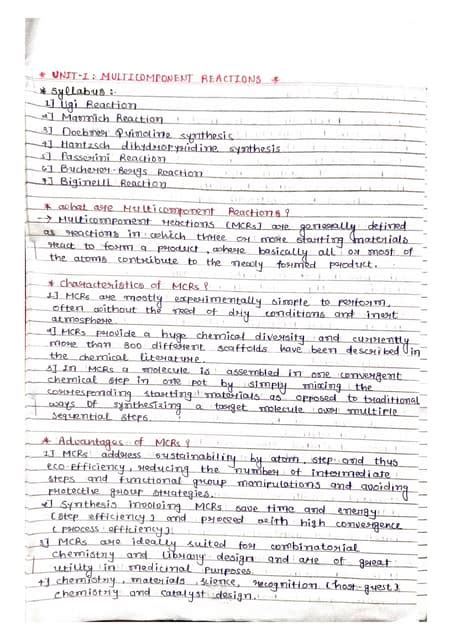 * UNIT-1 : MULTICOMPONENT REACTIONS *
* Syllabus :-
1] Ugi Reaction
2] Mannich Reaction
3] Doebner Quinoline synthesis
4] Hantzsch dihydropyridine synthesis
5] Passerini Reaction
6] Bucherer-Bergs Reaction
7] Biginelli Reaction
* What are Multicomponent Reactions ?
→ Multicomponent reactions [MCRs] are generally defined
as reactions in which three or more starting materials
react to form a product, where basically all or most of
the atoms contribute to the newly formed product.
* Characteristics of MCRs ?
1] MCRs are mostly experimentally simple to perform,
often without the need of dry conditions and inert
atmosphere.
2] MCRs provide a huge chemical diversity and currently
more than 300 different scaffolds have been described in
the chemical literature.
3] In MCRs a molecule is assembled in one convergent
chemical step in one pot by simply mixing the
corresponding starting materials as opposed to traditional
ways of synthesizing a target molecule over multiple
sequential steps.
* Advantages of MCRs ?
1] MCRs address sustainability by atom, step and thus
eco-efficiency, reducing the number of intermediate
steps and functional group manipulations and avoiding
protective group strategies.
2] Synthesis involving MCRs save time and energy
(step efficiency) and proceed with high convergence
(process efficiency).
3] MCRs are ideally suited for combinatorial
chemistry and library design and are of great
utility in medicinal purposes.
4] chemistry, materials science, recognition (host-guest)
chemistry and catalyst design.